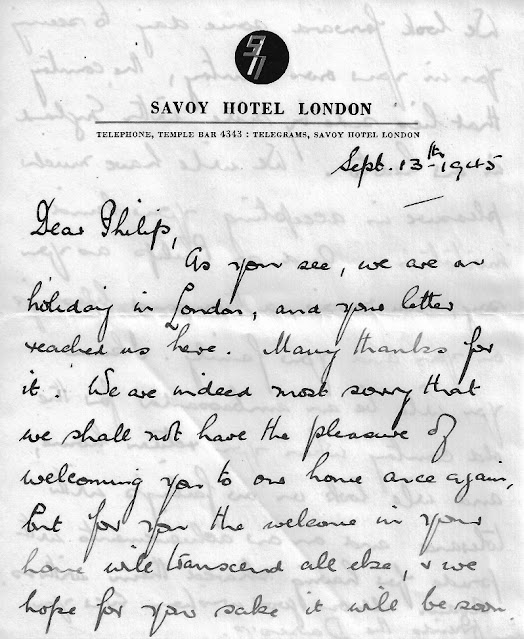 SAVOY HOTEL LONDON
TELEPHONE, TEMPLE BAR 4343 : TELEGRAMS, SAVOY HOTEL LONDON
Sept. 13th 1945
Dear Philip,
As you see, we are on
holiday in London, and your letter
reached us here. Many thanks for
it. We are indeed most sorry that
we shall not have the pleasure of
welcoming you to our home once again,
but for you the welcome in your
home will transcend all else, & we
hope for you sake it will be soon.